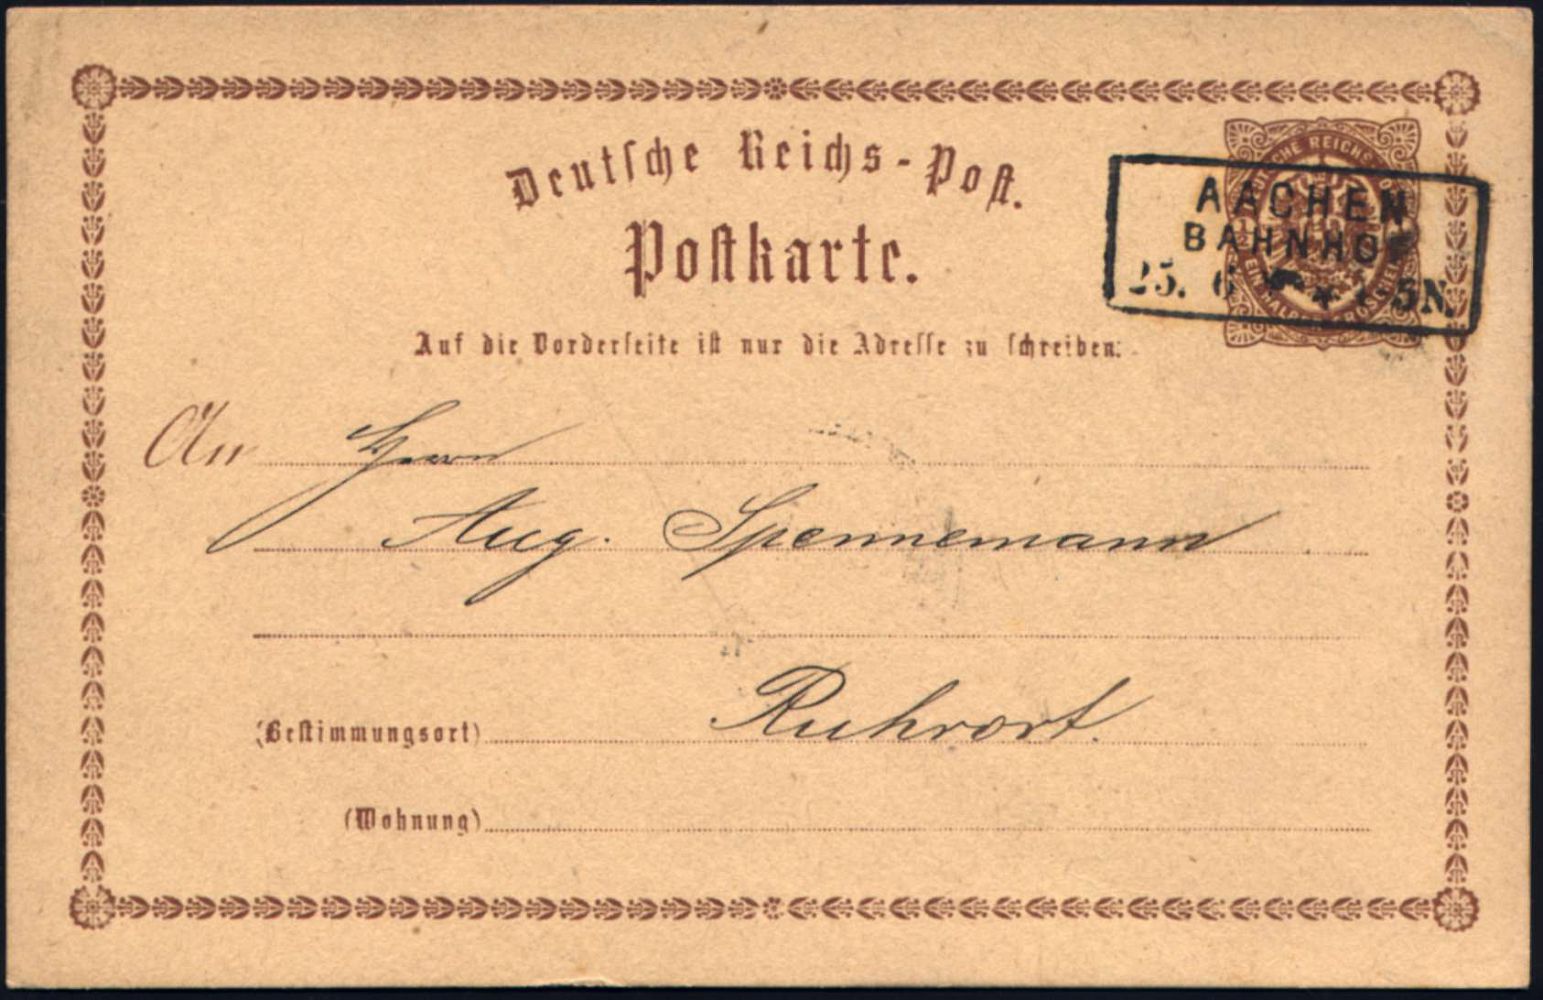 Deutsche Reichs-Post.
Postkarte.
DEUTSCHE REICHS
AACHEN
BAHNHOF
25. 6 5N.
Auf die Vorderseite ist nur die Adresse zu schreiben.
An Herrn
Aug. Spennemann
Ruhrort.
(Bestimmungsort)
(Wohnung)